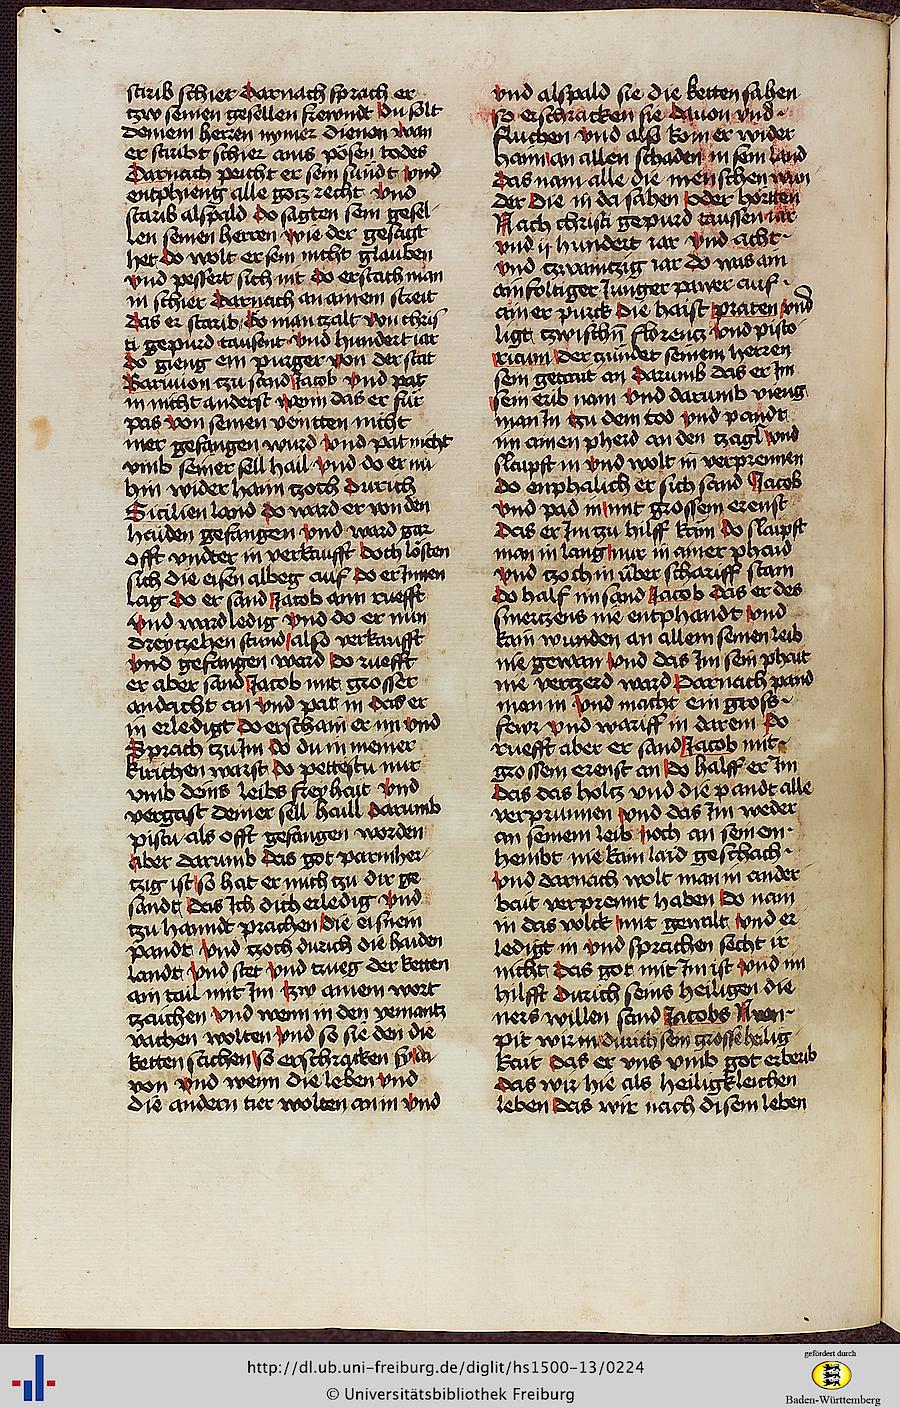 starib schier Darnach sprach er
tzw seinen gesellen frewndt Du solt
deinem herren nymer dienen wan
er stiribt schier ains pösen todes
Darnach peicht er sein sündt vnd
entphieng alle gotz recht vnd
starib alspald Do sagten sein gesel-
len seinen herren wie der gesagt
het Do wolt er sein nicht glauben
vnd pessert sich nit Do erstach man
in schier Darnach an ainem streit
Das er starib Do man tzalt von chris
ti gepurd tausent vnd hundert iar
do gieng ein purger von der stat
Barituon tzu sand Jacob vnd pat
in nicht anderst wenn das er für
pas von seinen veintten nicht
mer gefangen wurd vnd pat nicht
vmb seiner sell hail vnd do er nu
hin wider haim tzoch Durich
Sicilien land Do ward er von den
haiden gefangen vnd ward gar
offt vndter in verkaufft Doch lösten
sich die eisen albeg auf Do er Innen
lag Do er sand Jacob ann ruefft
vnd ward ledig vnd do er nun
dreytzehen stund also verkaufft
vnd gefangen ward Do ruefft
er aber sand Jacob mit grosser
andacht an vnd pat in Das er
in erledigt Do erschain er im vnd
Sprach tzu Im Do du in meiner
kirichen warst Do pettestu nur
vmb deins leibs freyhait vnd
vergast deiner sell haill Darumb
pistu als offt gefangen worden
Aber darumb Das got parmher-
tzig ist so hat er mich tzu dir ge
sandt Das Ich dich erledig vnd
tzu hanndt prachen die eisnem
pandt vnd tzoch durich die haiden
landt vnd stet vnd trueg der ketten
ain tail mit Im tzw ainem wort
tzaichen vnd wenn in den yemantz
vachen wolten vnd so sie den die
ketten sachen so erschracken sy da
von vnd wenn die leben vnd
die andern tier wolten an in vnd
vnd alspald sie die ketten sahen
so erschracken sie dauon vnd
fluchen vnd also kom er wider
haim an allen schaden in sein land
das nam alle die menschen wun
der Die in da sahen oder hörtten
Nach christi gepurd taussen iar
vnd ij hundert iar vnd acht
vnd tzwaintzig iar do was ain
ainfoltiger Junger pawer auf
ainer purck Die haist praten vnd
ligt tzwischn florentz vnd pisto
ricum Der tzündet seinem herren
sein getrait an Darumb das er Im
sein erib nam vnd darumb vieng
man In tzu dem tod vnd pandt
im ainen pherd an den tzagl vnd
slaipft in vnd wolt in verprennen
do enphalich er sich sand Jacob
vnd pad in mit grossem ernst
Das er Im tzu hilff käm Do slaipft
man in lang nur in ainer phaid
vnd tzoch in über schariff stain
Do half im sand Jacob das er des
smertzens nie entphandt vnd
kain wunden an allem seinen leib
nie gewan vnd das Im sein phait
nie vertzerd ward Darnach pand
man in vnd macht ein gross
fewr vnd wariff in darein Do
ruefft aber er sand Jacob mit
grossem erenst an Do halff er Im
Das das holtz vnd die pandt alle
verprunnen vnd das Im weder
an seinem leib noch an seinem
hembt nie kain laid geschach
vnd darnach wolt man in ander
bait verprennt haben Do nam
in das volck mit gewalt vnd er
ledigt in vnd sprachen secht ir
nicht Das got mit Im ist vnd im
hilfft Durich seins heiligen die
ners willen sand Jacobs Nun
pit wir in durich sein grosse heilig
kait Das er vns vmb got erberib
das wir hie als heiligkleichen
leben Das wir nach disem leben
http://dl.ub.uni-freiburg.de/diglit/hs1500-13/0224
© Universitätsbibliothek Freiburg
gefördert durch
Baden-Württemberg